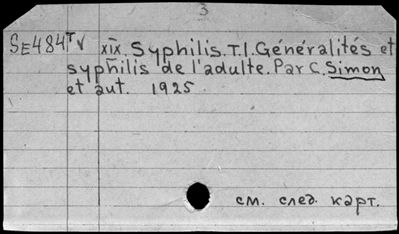 3
SE484 TV XIX. Syphilis. T.I. Généralités et
syphilis de l'adulte. Par C. Simon
et aut. 1925
см. след. карт.